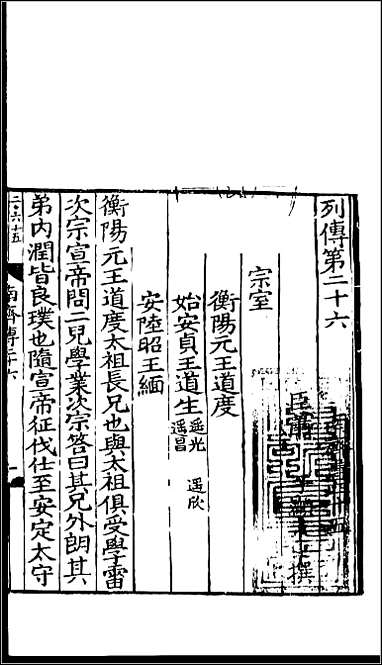 列傳第二十六
臣蕭 子顯 撰
宗室
衡陽元王道度
始安貞王道生 遥光 遥欣 遥昌
安陸昭王緬
衡陽元王道度太祖長兄也與太祖俱受學雷
次宗宣帝問二兒學業次宗答曰其兄外朗其
弟内潤皆良璞也隨宣帝征伐仕至安定太守
南齊傳二十六